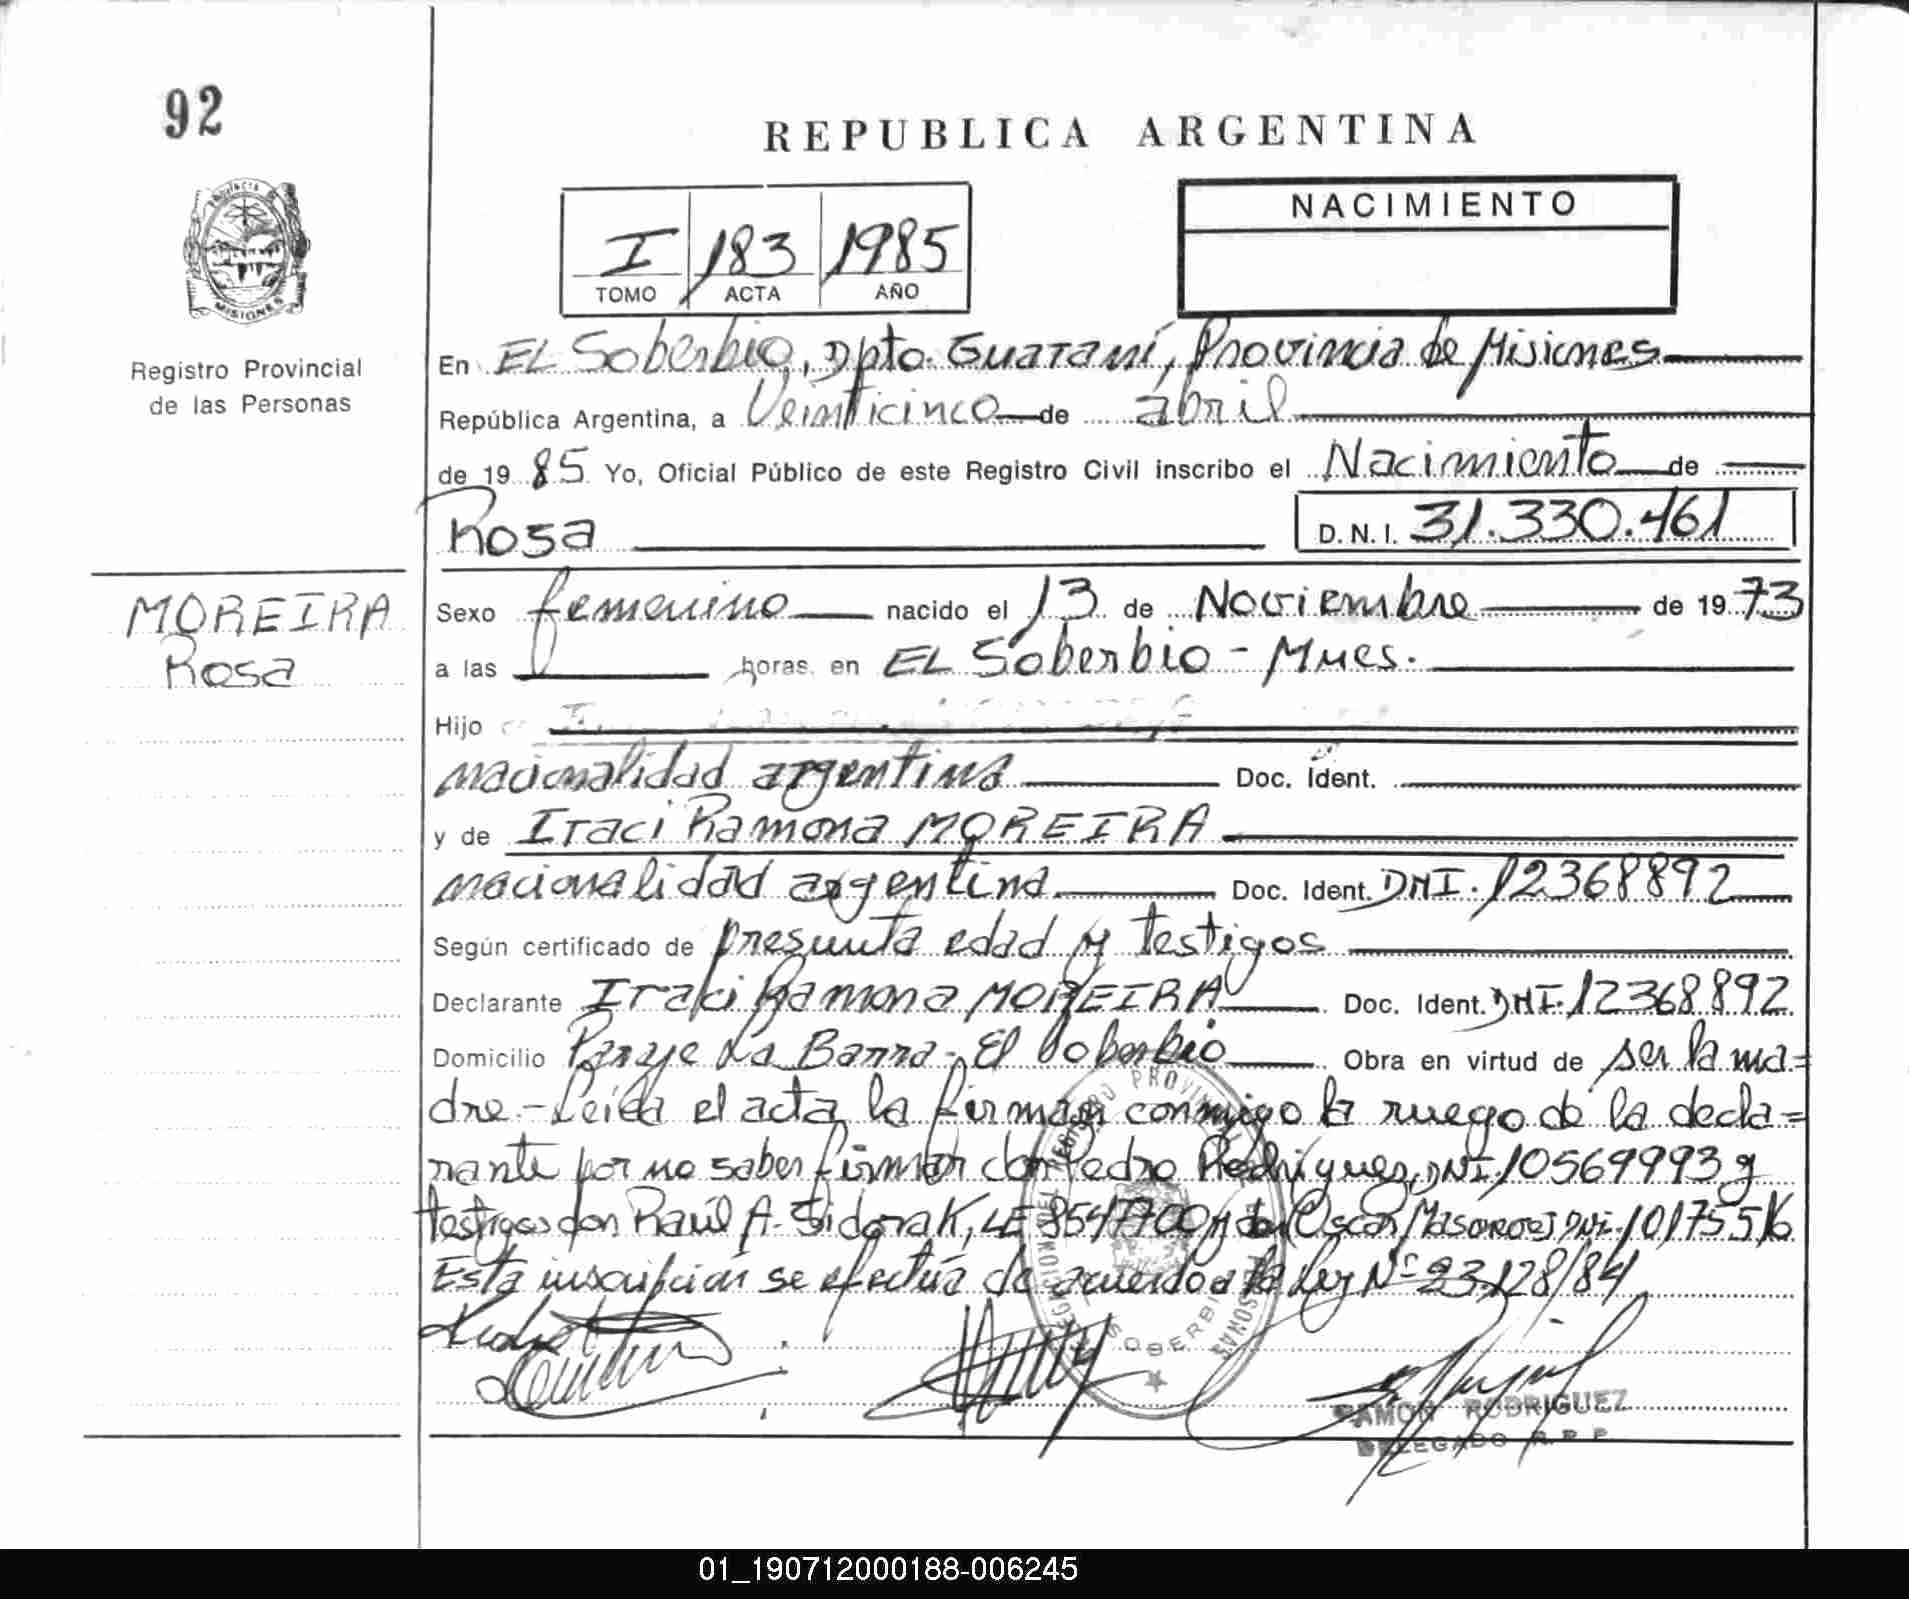 92
REPUBLICA ARGENTINA
PROVINCIA DE
MISIONES
Registro Provincial
de las Personas
I 183 1985
TOMO ACTA AÑO
NACIMIENTO
En EL Soberbio, Dpto. Guaraní, Provincia de Misiones
República Argentina, a Veinticinco de abril
de 19 85 Yo, Oficial Público de este Registro Civil inscribo el Nacimiento de
Rosa D.N.I. 31.330.461
MOREIRA
Rosa
Sexo femenino nacido el 13 de Noviembre de 19 73
a las horas en EL Soberbio - Mnes.
Hijo
nacionalidad argentina Doc. Ident.
y de Iraci Ramona MOREIRA
nacionalidad argentina Doc. Ident. DNI. 12368892
Según certificado de presunta edad y testigos
Declarante Iraci Ramona MOREIRA Doc. Ident. DNI. 12368892
Domicilio Paraje La Barra - El Soberbio Obra en virtud de ser la ma=
dre.- Leída el acta la firman conmigo a ruego de la decla=
rante por no saber firmar don Pedro Rodríguez, DNI. 10569993 y
testigos don Raúl A. Sidorak, LE 8547700 y don Oscar DNI. 10175516
Esta inscripción se efectúa de acuerdo a la Ley Nº 23.128/84
REGISTRO PROVINCIAL
SOBERBIO
RAMON RODRIGUEZ
DELEGADO R.P.P.
01_190712000188-006245